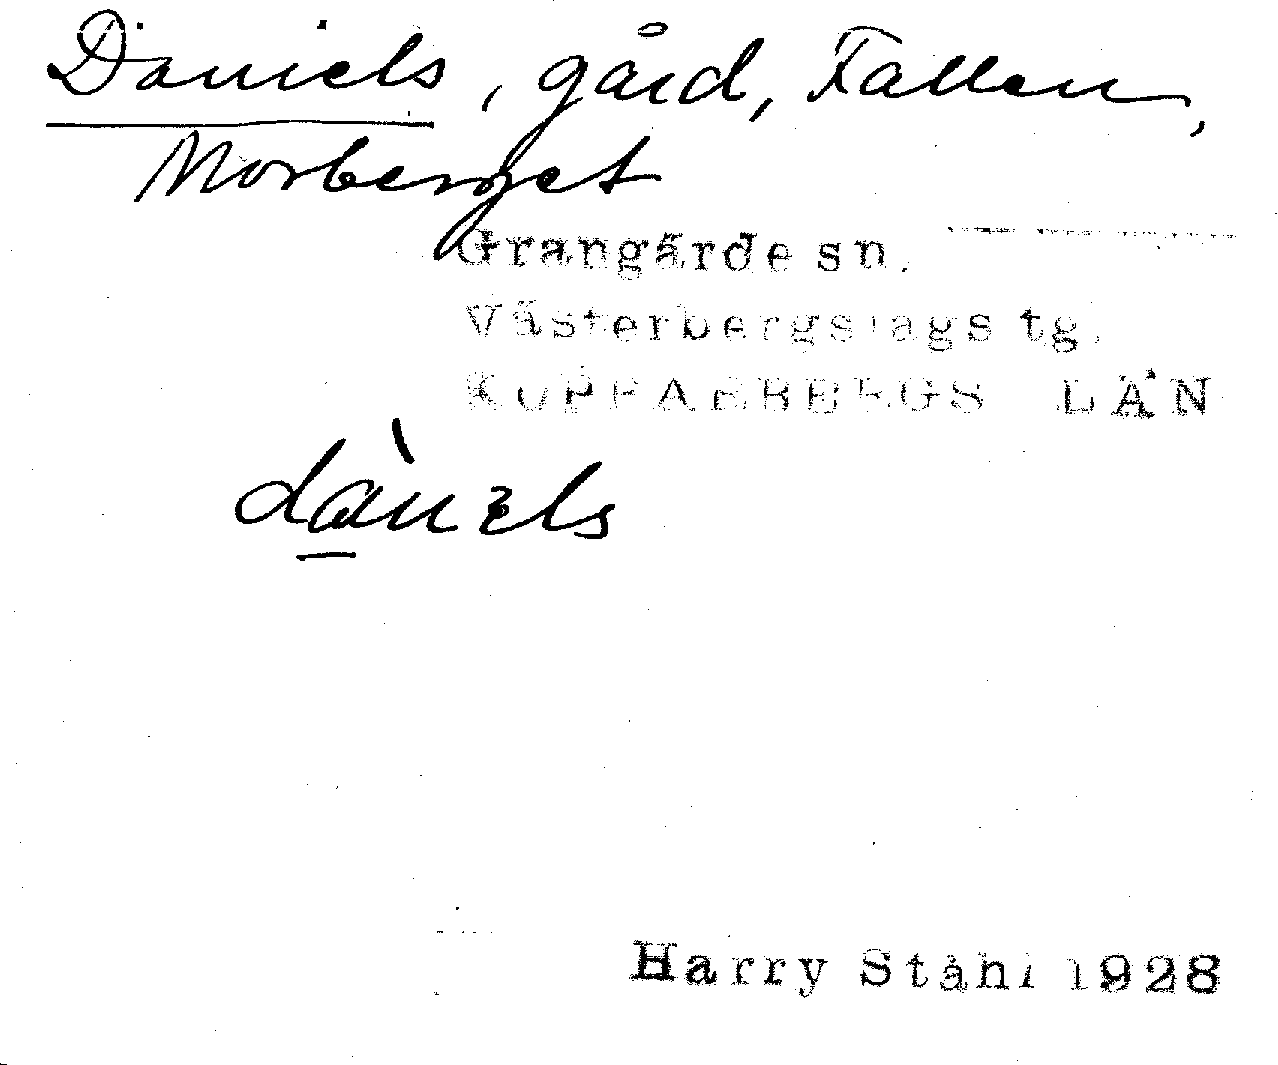 Daniels, gård, Fallen,
Norberget
Grangärde sn.
Västerbergslags tg.
KOPPARBERGS LÄN
dànɛls
Harry Ståhl 1928